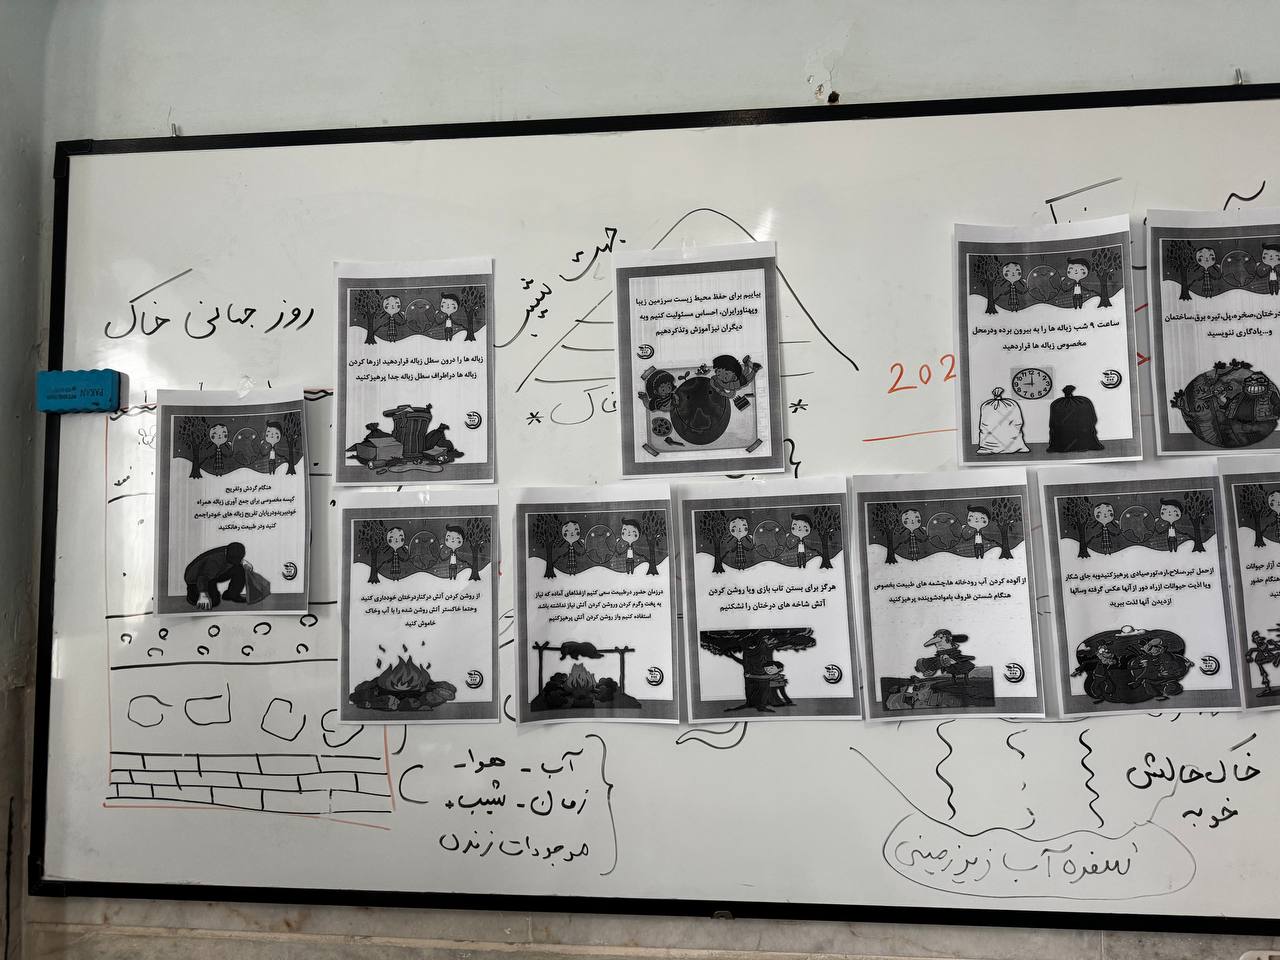 روز جهانی خاک
جهت شیب
خاک
202
PAKAN
هنگام گردش وتفریح
کیسه مخصوصی برای جمع آوری زباله همراه
خودببریدودرپایان تفریح زباله های خودراجمع
کنید ودر طبیعت رهانکنید
زباله ها را درون سطل زباله قراردهید ازرها کردن
زباله ها دراطراف سطل زباله جدا پرهیزکنید
بیاییم برای حفظ محیط زیست سرزمین زیبا
وپهناورایران، احساس مسئولیت کنیم وبه
دیگران نیزآموزش وتذکردهیم
ساعت ۹ شب زباله ها را به بیرون برده ودرمحل
مخصوص زباله ها قراردهید
درختان،صخره،پل،تیره برق،ساختمان
و...یادگاری ننویسید
از روشن کردن آتش درکناردرختان خودداری کنید
وحتما خاکستر آتش روشن شده را با آب وخاک
خاموش کنید
درزمان حضور درطبیعت سعی کنیم ازغذاهای آماده که نیاز
به پخت وگرم کردن وروشن کردن آتش نیاز نداشته باشد
استفاده کنیم واز روشن کردن آتش پرهیزکنیم
هرگز برای بستن تاب بازی ویا روشن کردن
آتش شاخه های درختان را نشکنیم
از آلوده کردن آب رودخانه ها،چشمه های طبیعت بخصوص
هنگام شستن ظروف بامواد‌شوینده پرهیزکنید
ازحمل تیر،سلاح،اره،تورصیادی پرهیزکنیدوبه جای شکار
ویا اذیت حیوانات ازراه دور ازآنها عکس گرفته وسالها
ازدیدن آنها لذت ببرید
آزار حیوانات
هنگام حضور
آب - هوا -
زمان - شیب +
موجودات زنده
خاک حالش
خوبه
سفره آب زیرزمینی